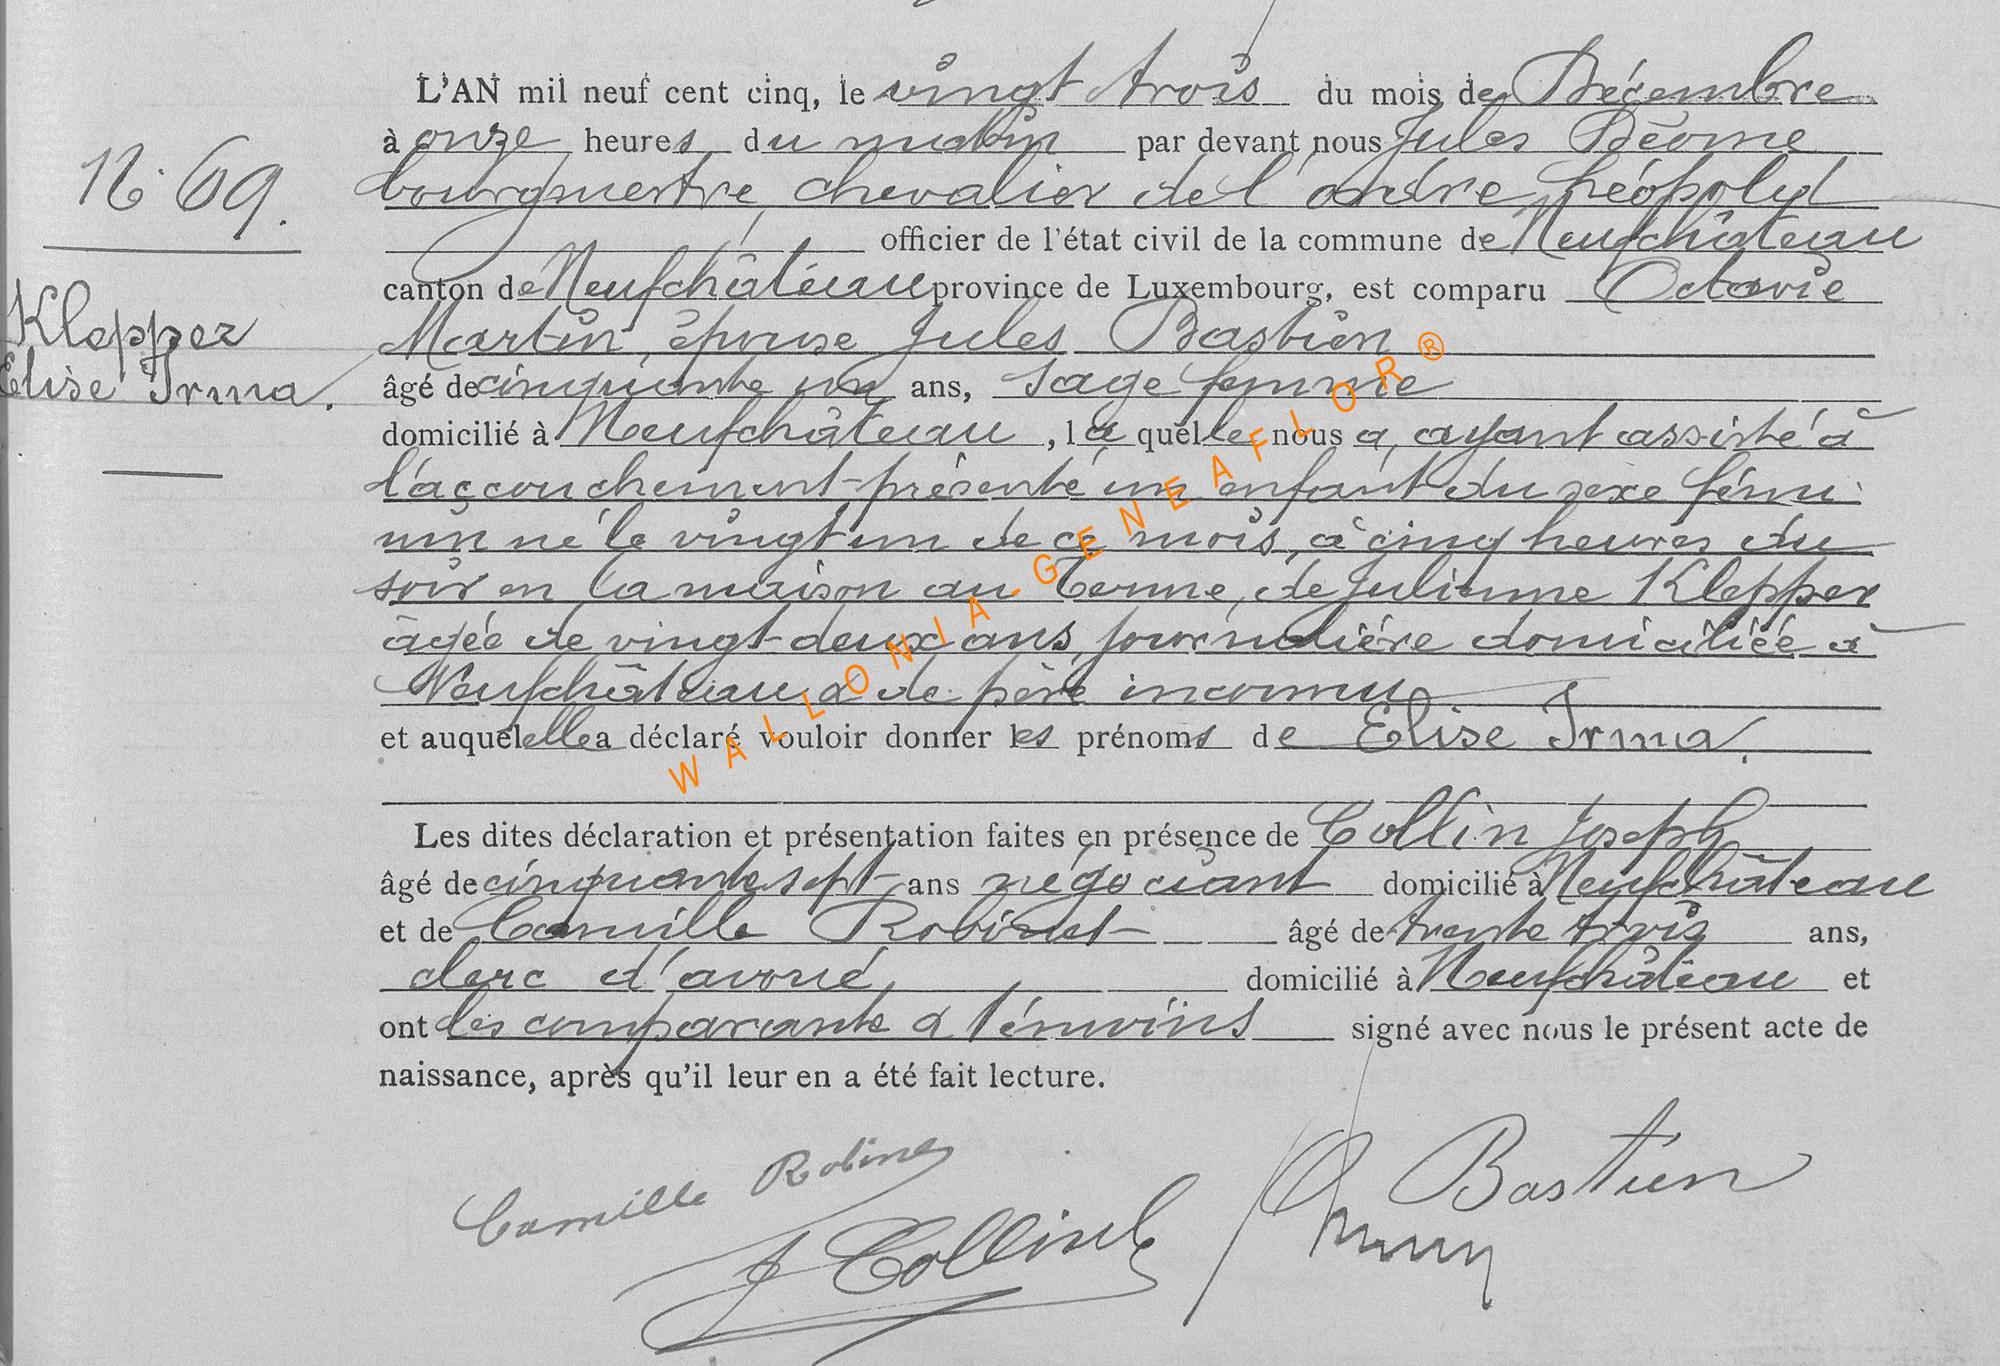 L'AN mil neuf cent cinq, le vingt trois du mois de Décembre
à onze heures du matin par devant nous Jules Déome
bourgmestre, chevalier de l'ordre Léopold
officier de l'état civil de la commune de Neufchâteau
canton de Neufchâteau province de Luxembourg, est comparu Octavie
Martin, épouse Jules Bastien
âgé de cinquante un ans, sage femme
domicilié à Neufchâteau, la quelle nous a, ayant assisté à
l'accouchement présenté un enfant du sexe fémi
nin né le vingt un de ce mois, à cinq heures du
soir en la maison au Terme, de Julienne Klepper
âgée de vingt-deux ans, journalière domiciliée à
Neufchâteau & de père inconnu
et auquel elle a déclaré vouloir donner les prénoms de Elise Irma.
Les dites déclaration et présentation faites en présence de Collin Joseph
âgé de cinquante sept ans négociant domicilié à Neufchâteau
et de Camille Robinet âgé de trente trois ans,
clerc d'avoué, domicilié à Neufchâteau et
ont les comparante & témoins signé avec nous le présent acte de
naissance, après qu'il leur en a été fait lecture.
N° 69.
Klepper
Elise Irma.
Camille Robinet
J Collin
Bastien
WALLONIA-GENEAFLOR®